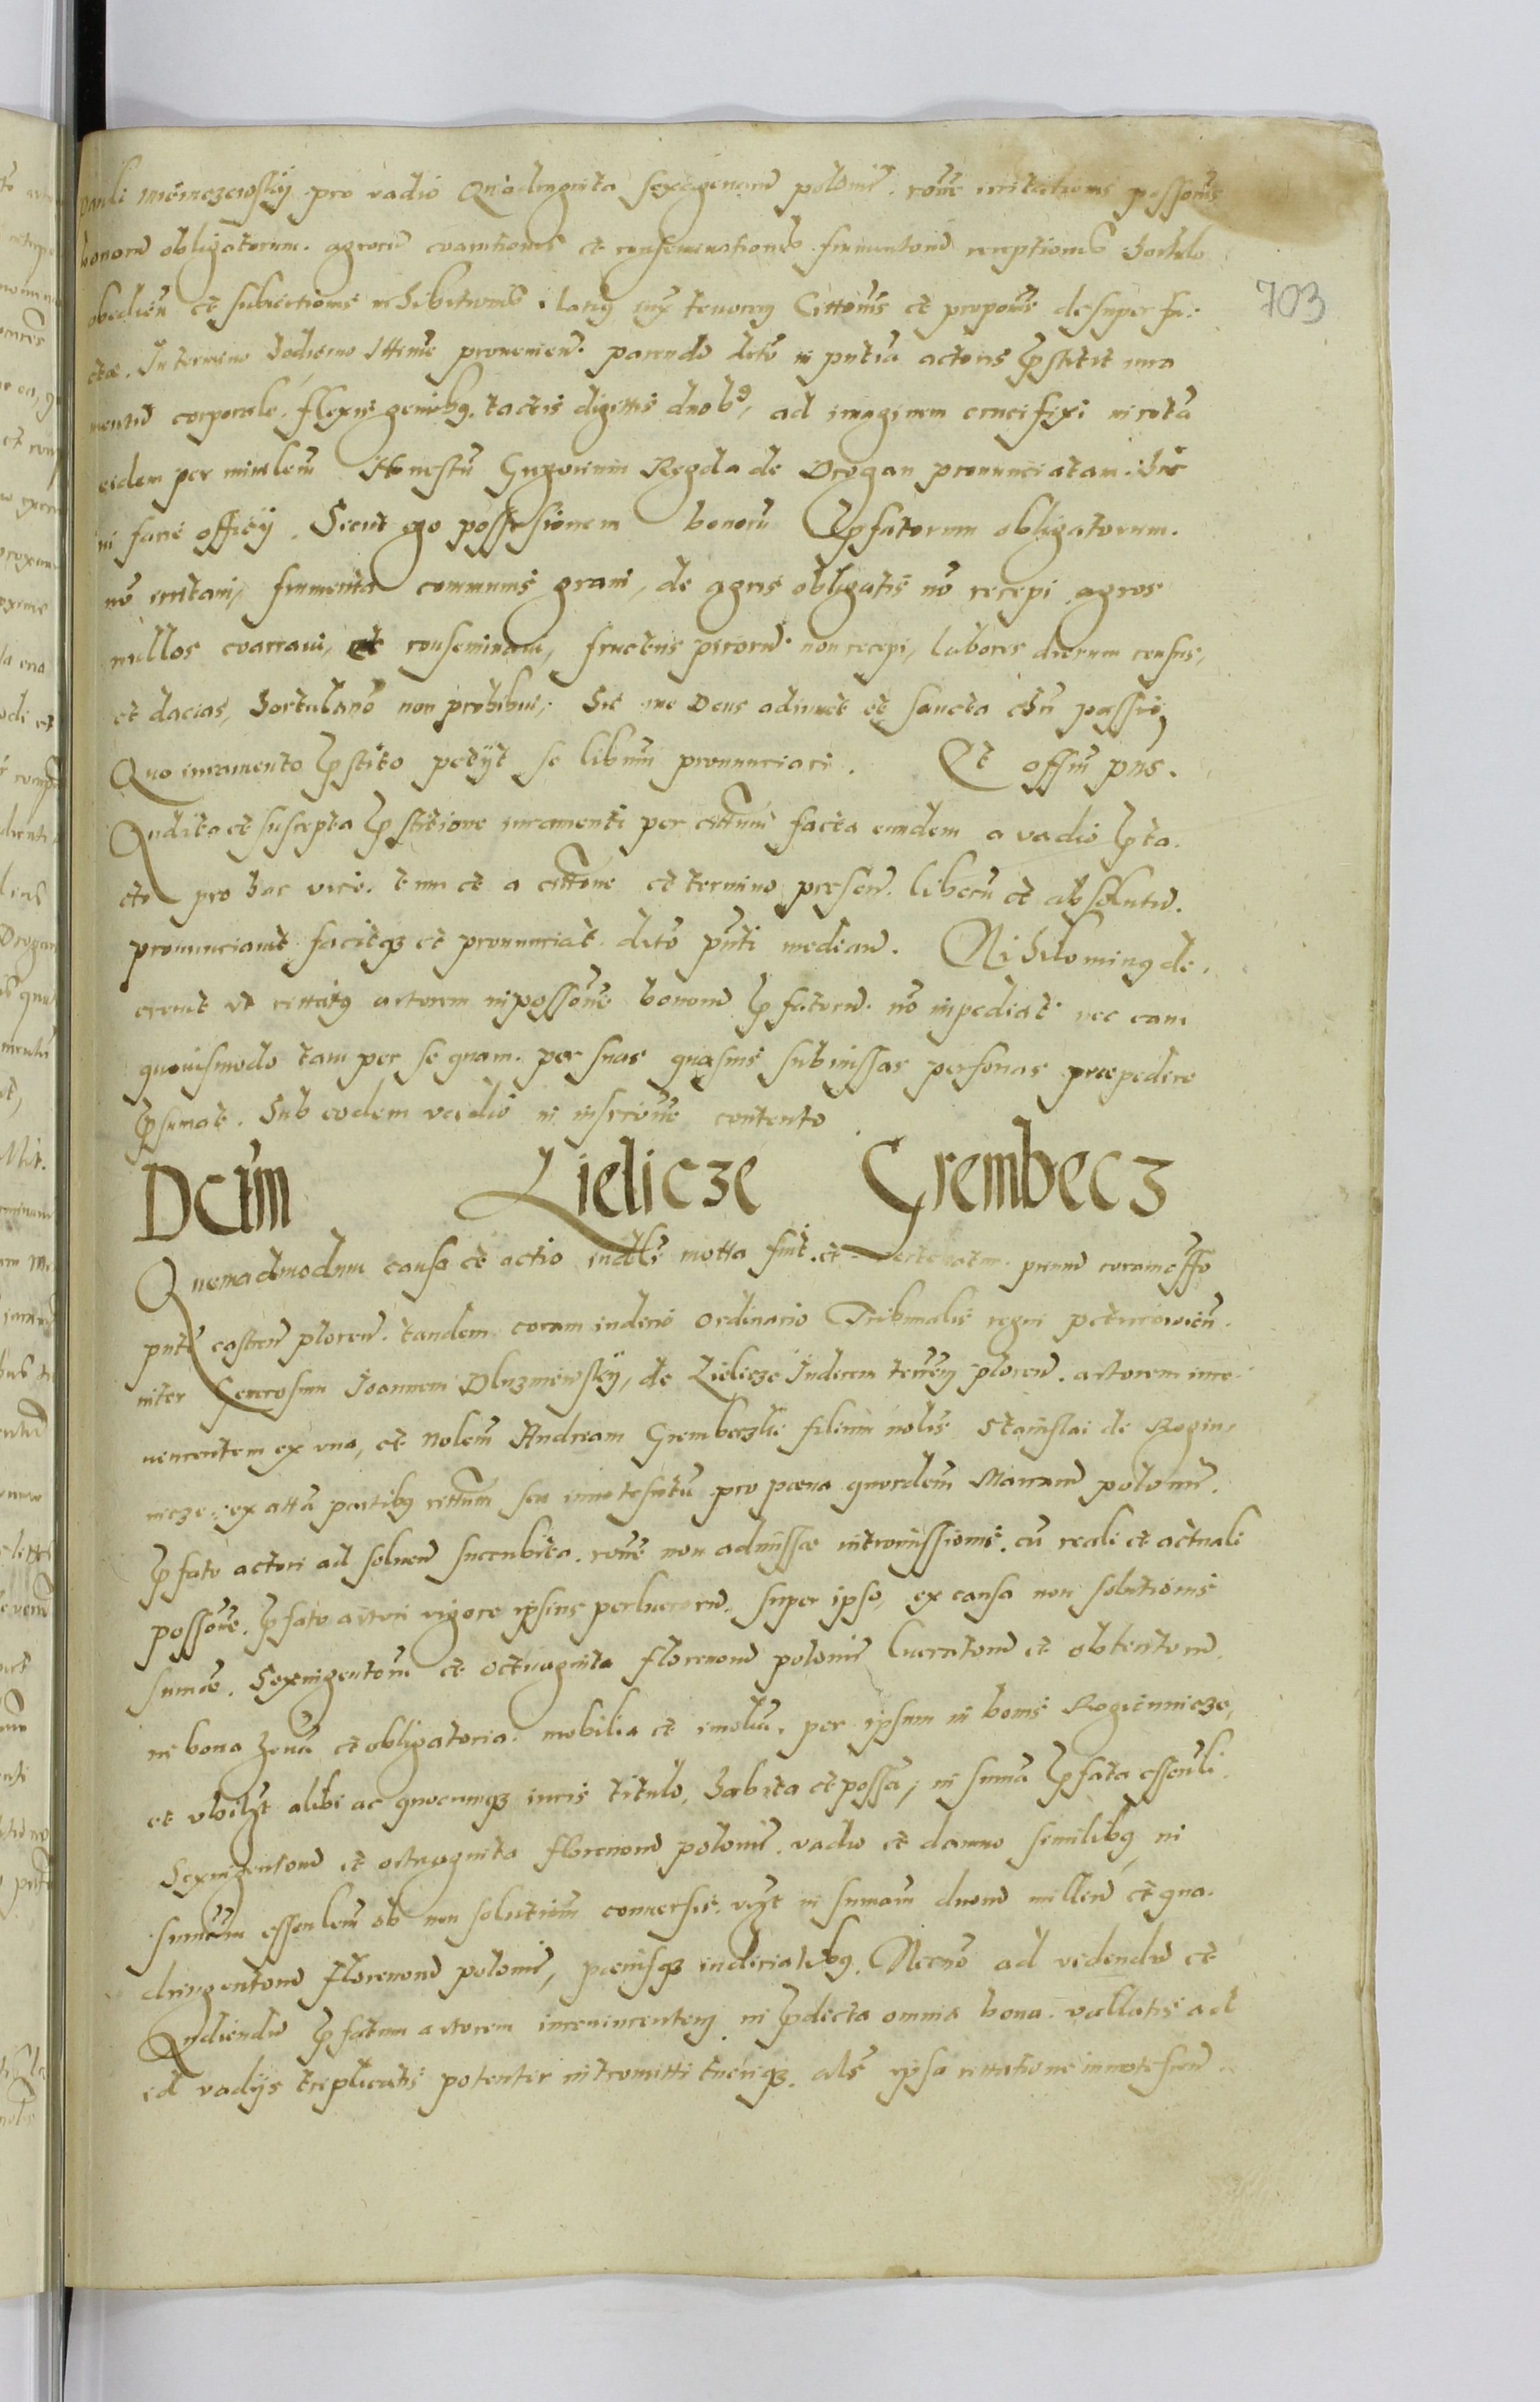 Pauli Niemczewskÿ pro vadio Quadraginta sexagenarū poloniē. rõne irritationis possonis
bonorū obligatorum. agrorū evarationis et conseminationis frumentorū receptionis hortulo
obedien et subiectionis inhibitionis latiꝰ iux tenorem Cittonis et proponis desuper fa:
ctæ. In termino hodierno ittinē provenien. parendo dcto in pntia actoris p̄stitit iura
mentū corporale, flexis genibꝫ, tactis digittis duobꝰ, ad imaginem crucifixi in rota
eidem per minlem Honestū Gregorium Regda de Drogan pronunciatam. hic
in facie officÿ. Sicut ego possessionem bonorū p̄fatorum obligatorum.
nō irritavi, frumenta communis grani, de agris obligatis nō recepi agros
nullos evaravi, et conseminavi, fructus piscorū non recepi, labores dierum census,
et dacias, hortulanō non prohibui, Sic me Deus adiuvet et sancta chri passio,
Quo iuramento p̄stito petÿt se liberū pronunciari. Et offm pns.
Audita et suscepta p̄stitione iuramenti per cittum facta eundem a vadio p̄ta
cto pro hac vice. tum et a cittone et termino præsen. liberū et absolutū.
pronunciavit facitqꝫ et pronunciat. dcto pnti median. Nihilominꝰ de,
crevit ut cittatꝰ actorem in possone bonorū p̄fatorū. nō inpediat nec eam
quovismodo tam per se quam. per suas quasvis subinissas personas præpedire
p̄sumat. Sub eodem vadio in inscrone contento
Dctm Lielicze Grembecz
Quemadmodum causa et actio indcls motta fuit. et vertebatur. primū coram offo
pnti castren ploren. tandem coram iudicio ordinario Tribunalis regni petricovien.
inter Generosum Joannem Dluzniewskÿ, de Lielicze Iudicem terrēm ploren. actorem iure
vincentem ex una, et Nolem Andream Grembeczkÿ filium nolis Stanislai de Rogien,
nicze. ex altā partibꝫ cittum seu innotescitū pro pœna quordem Marcarū polonie.
p̄fato actori ad solven succubita. rōne non admissæ intromissionis. cū reali et actuali
possone. p̄fato actori vigore ipsius perlucrorū. super ipso, ex causa non solutionis
sumæ. Sexingentorū et octuaginta florenorū polonie lucratorū et obtentorū.
in bona hæra et obligatoria. mobilia et imobia. per ipsum in bonis Rogiennicze,
et ubivizt alibi ac quocumqꝫ iuris titulo, habita et possa, in suma p̄fata essenli.
Sexingentorū et octuaginta florenorū polonie. vadio et damno similibꝫ in
sumam essenlem ob non solutiom conversis. vizt in sumam duorū millen et qua.
dringentorū florenorū polonie, pœnisqꝫ iudiciatibꝫ. Necnō ad videndū et
Audiendū p̄fatum actorem iurevincentem in p̄dicta omnia bona. vallatis ad
id vadÿs triplicatis potenter intromitti tueriqꝫ. als ipsa cittatione innotescen.
703